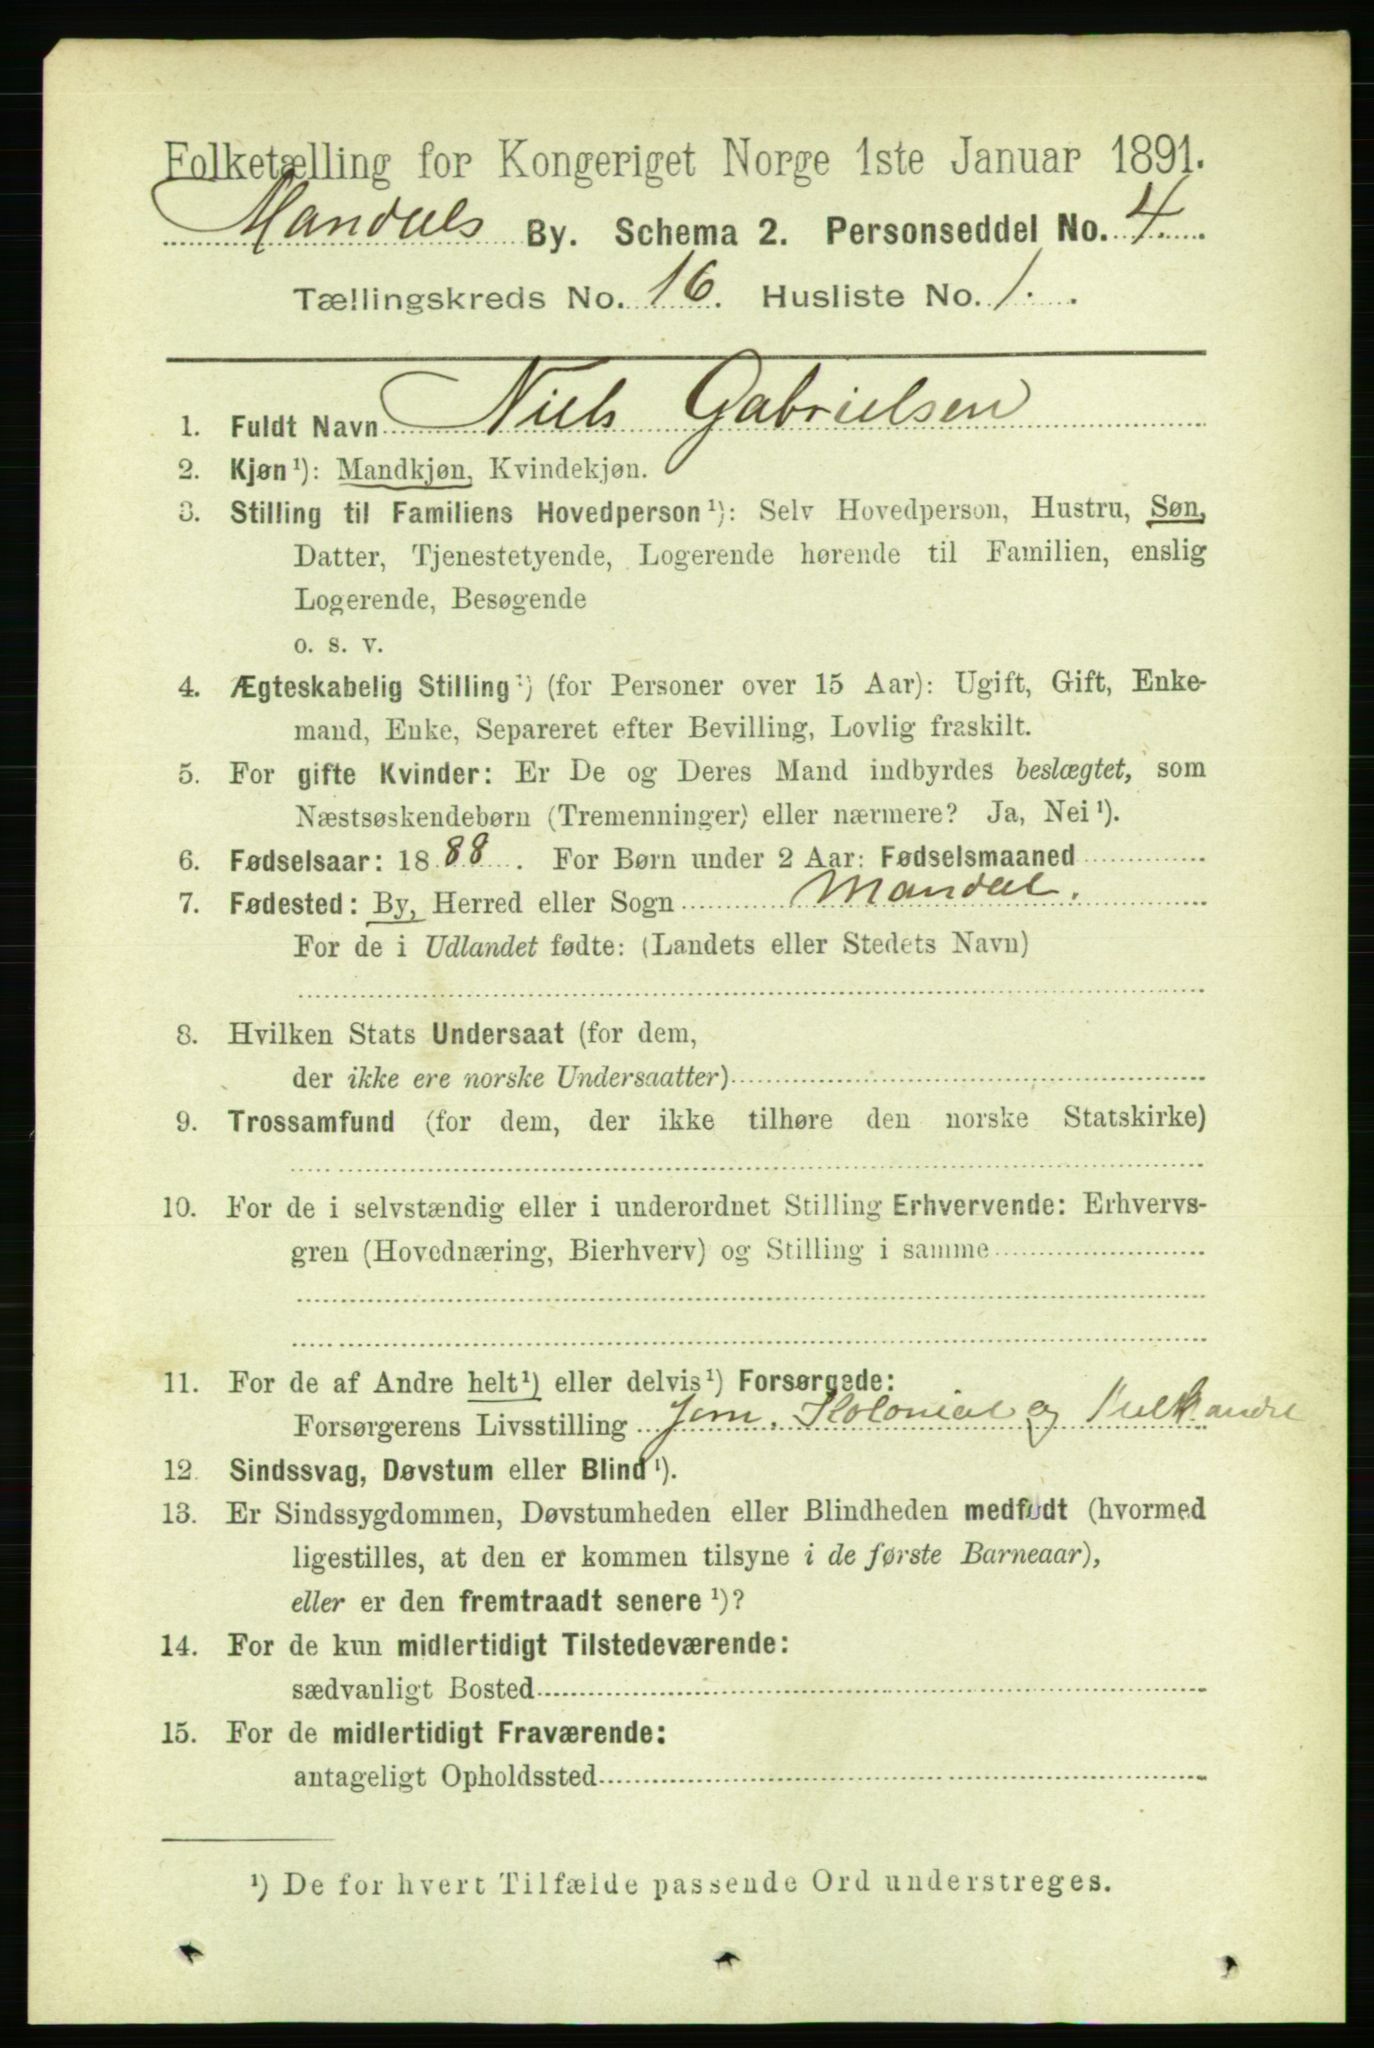 Folketælling for Kongeriget Norge 1ste Januar 1891.
Mandals By. Schema 2. Personseddel No. 4.
Tællingskreds No. 16. Husliste No. 1.
1. Fuldt Navn Niels Gabrielsen
2. Kjøn¹): Mandkjøn, Kvindekjøn.
3. Stilling til Familiens Hovedperson¹): Selv Hovedperson, Hustru, Søn,
Datter, Tjenestetyende, Logerende hørende til Familien, enslig
Logerende, Besøgende
o. s. v.
4. Ægteskabelig Stilling¹) (for Personer over 15 Aar): Ugift, Gift, Enke-
mand, Enke, Separeret efter Bevilling, Lovlig fraskilt.
5. For gifte Kvinder: Er De og Deres Mand indbyrdes beslægtet, som
Næstsøskendebørn (Tremenninger) eller nærmere? Ja, Nei¹).
6. Fødselsaar: 1888. For Børn under 2 Aar: Fødselsmaaned
7. Fødested: By, Herred eller Sogn Mandal.
For de i Udlandet fødte: (Landets eller Stedets Navn)
8. Hvilken Stats Undersaat (for dem,
der ikke ere norske Undersaatter)
9. Trossamfund (for dem, der ikke tilhøre den norske Statskirke)
10. For de i selvstændig eller i underordnet Stilling Erhvervende: Erhvervs-
gren (Hovednæring, Bierhverv) og Stilling i samme
11. For de af Andre helt¹) eller delvis¹) Forsørgede:
Forsørgerens Livsstilling Jern, Kolonial og
12. Sindssvag, Døvstum eller Blind¹).
13. Er Sindssygdommen, Døvstumheden eller Blindheden medfødt (hvormed
ligestilles, at den er kommen tilsyne i de første Barneaar),
eller er den fremtraadt senere¹)?
14. For de kun midlertidigt Tilstedeværende:
sædvanligt Bosted
15. For de midlertidigt Fraværende:
antageligt Opholdssted
¹) De for hvert Tilfælde passende Ord understreges.